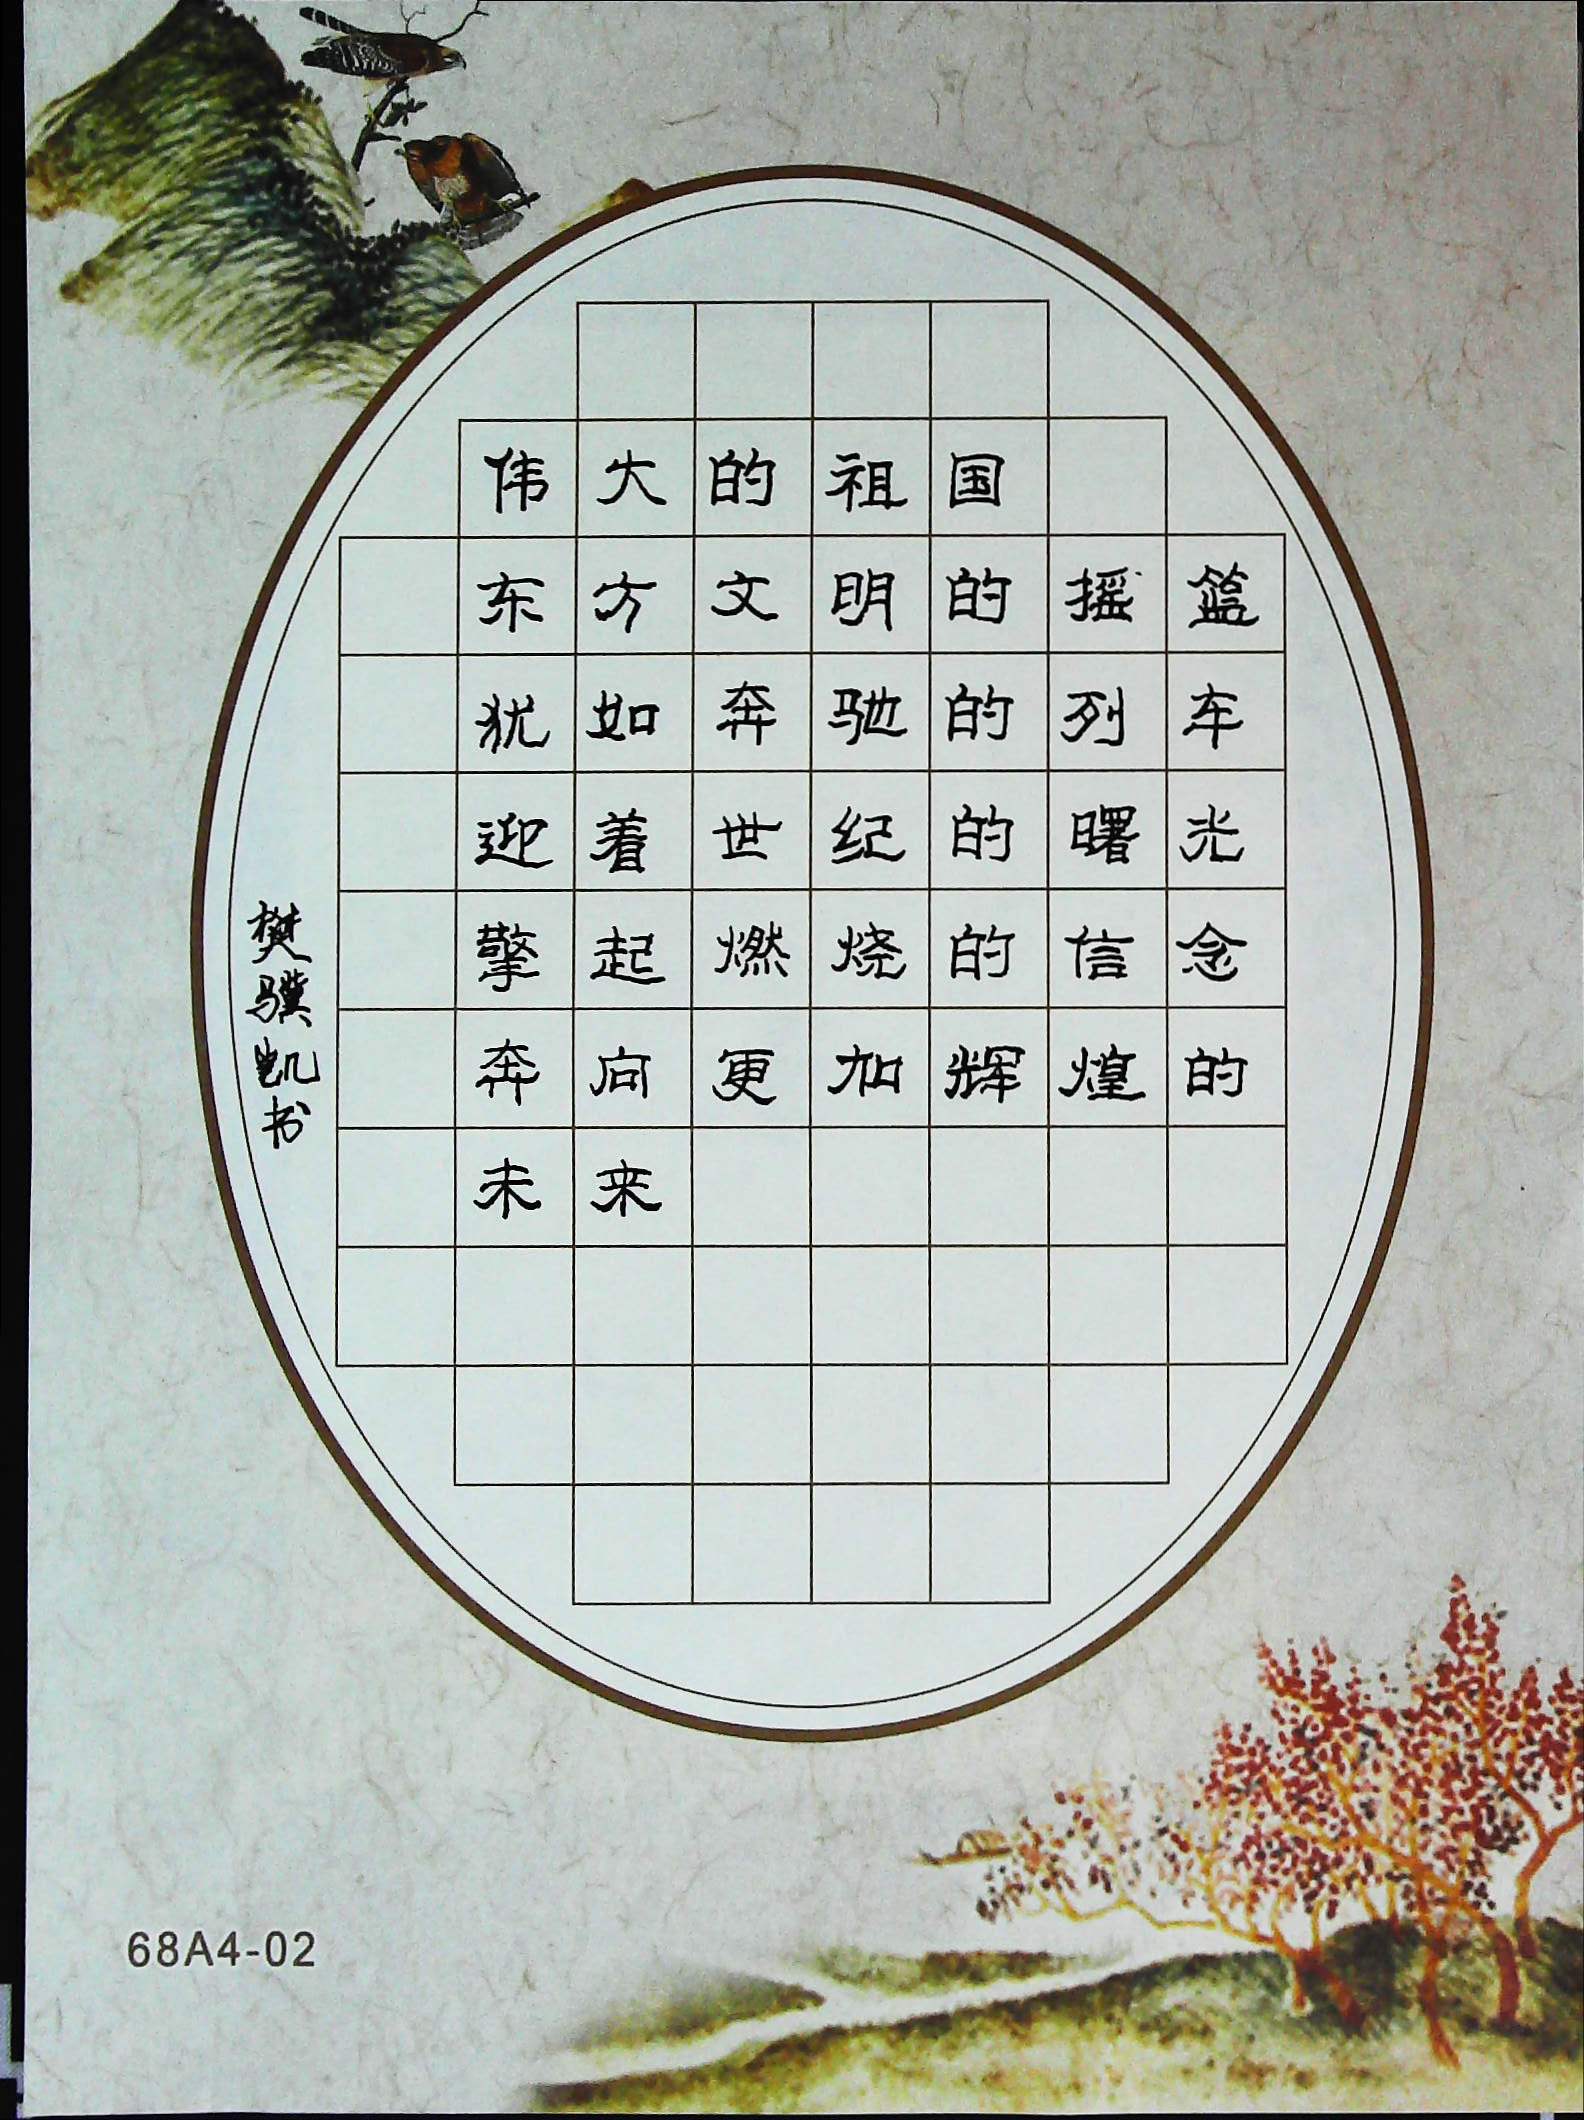 伟大的祖国
东方文明的摇篮
犹如奔驰的列车
迎着世纪的曙光
擎起燃烧的信念
奔向更加辉煌的
未来
樊骥凯书
68A4-02